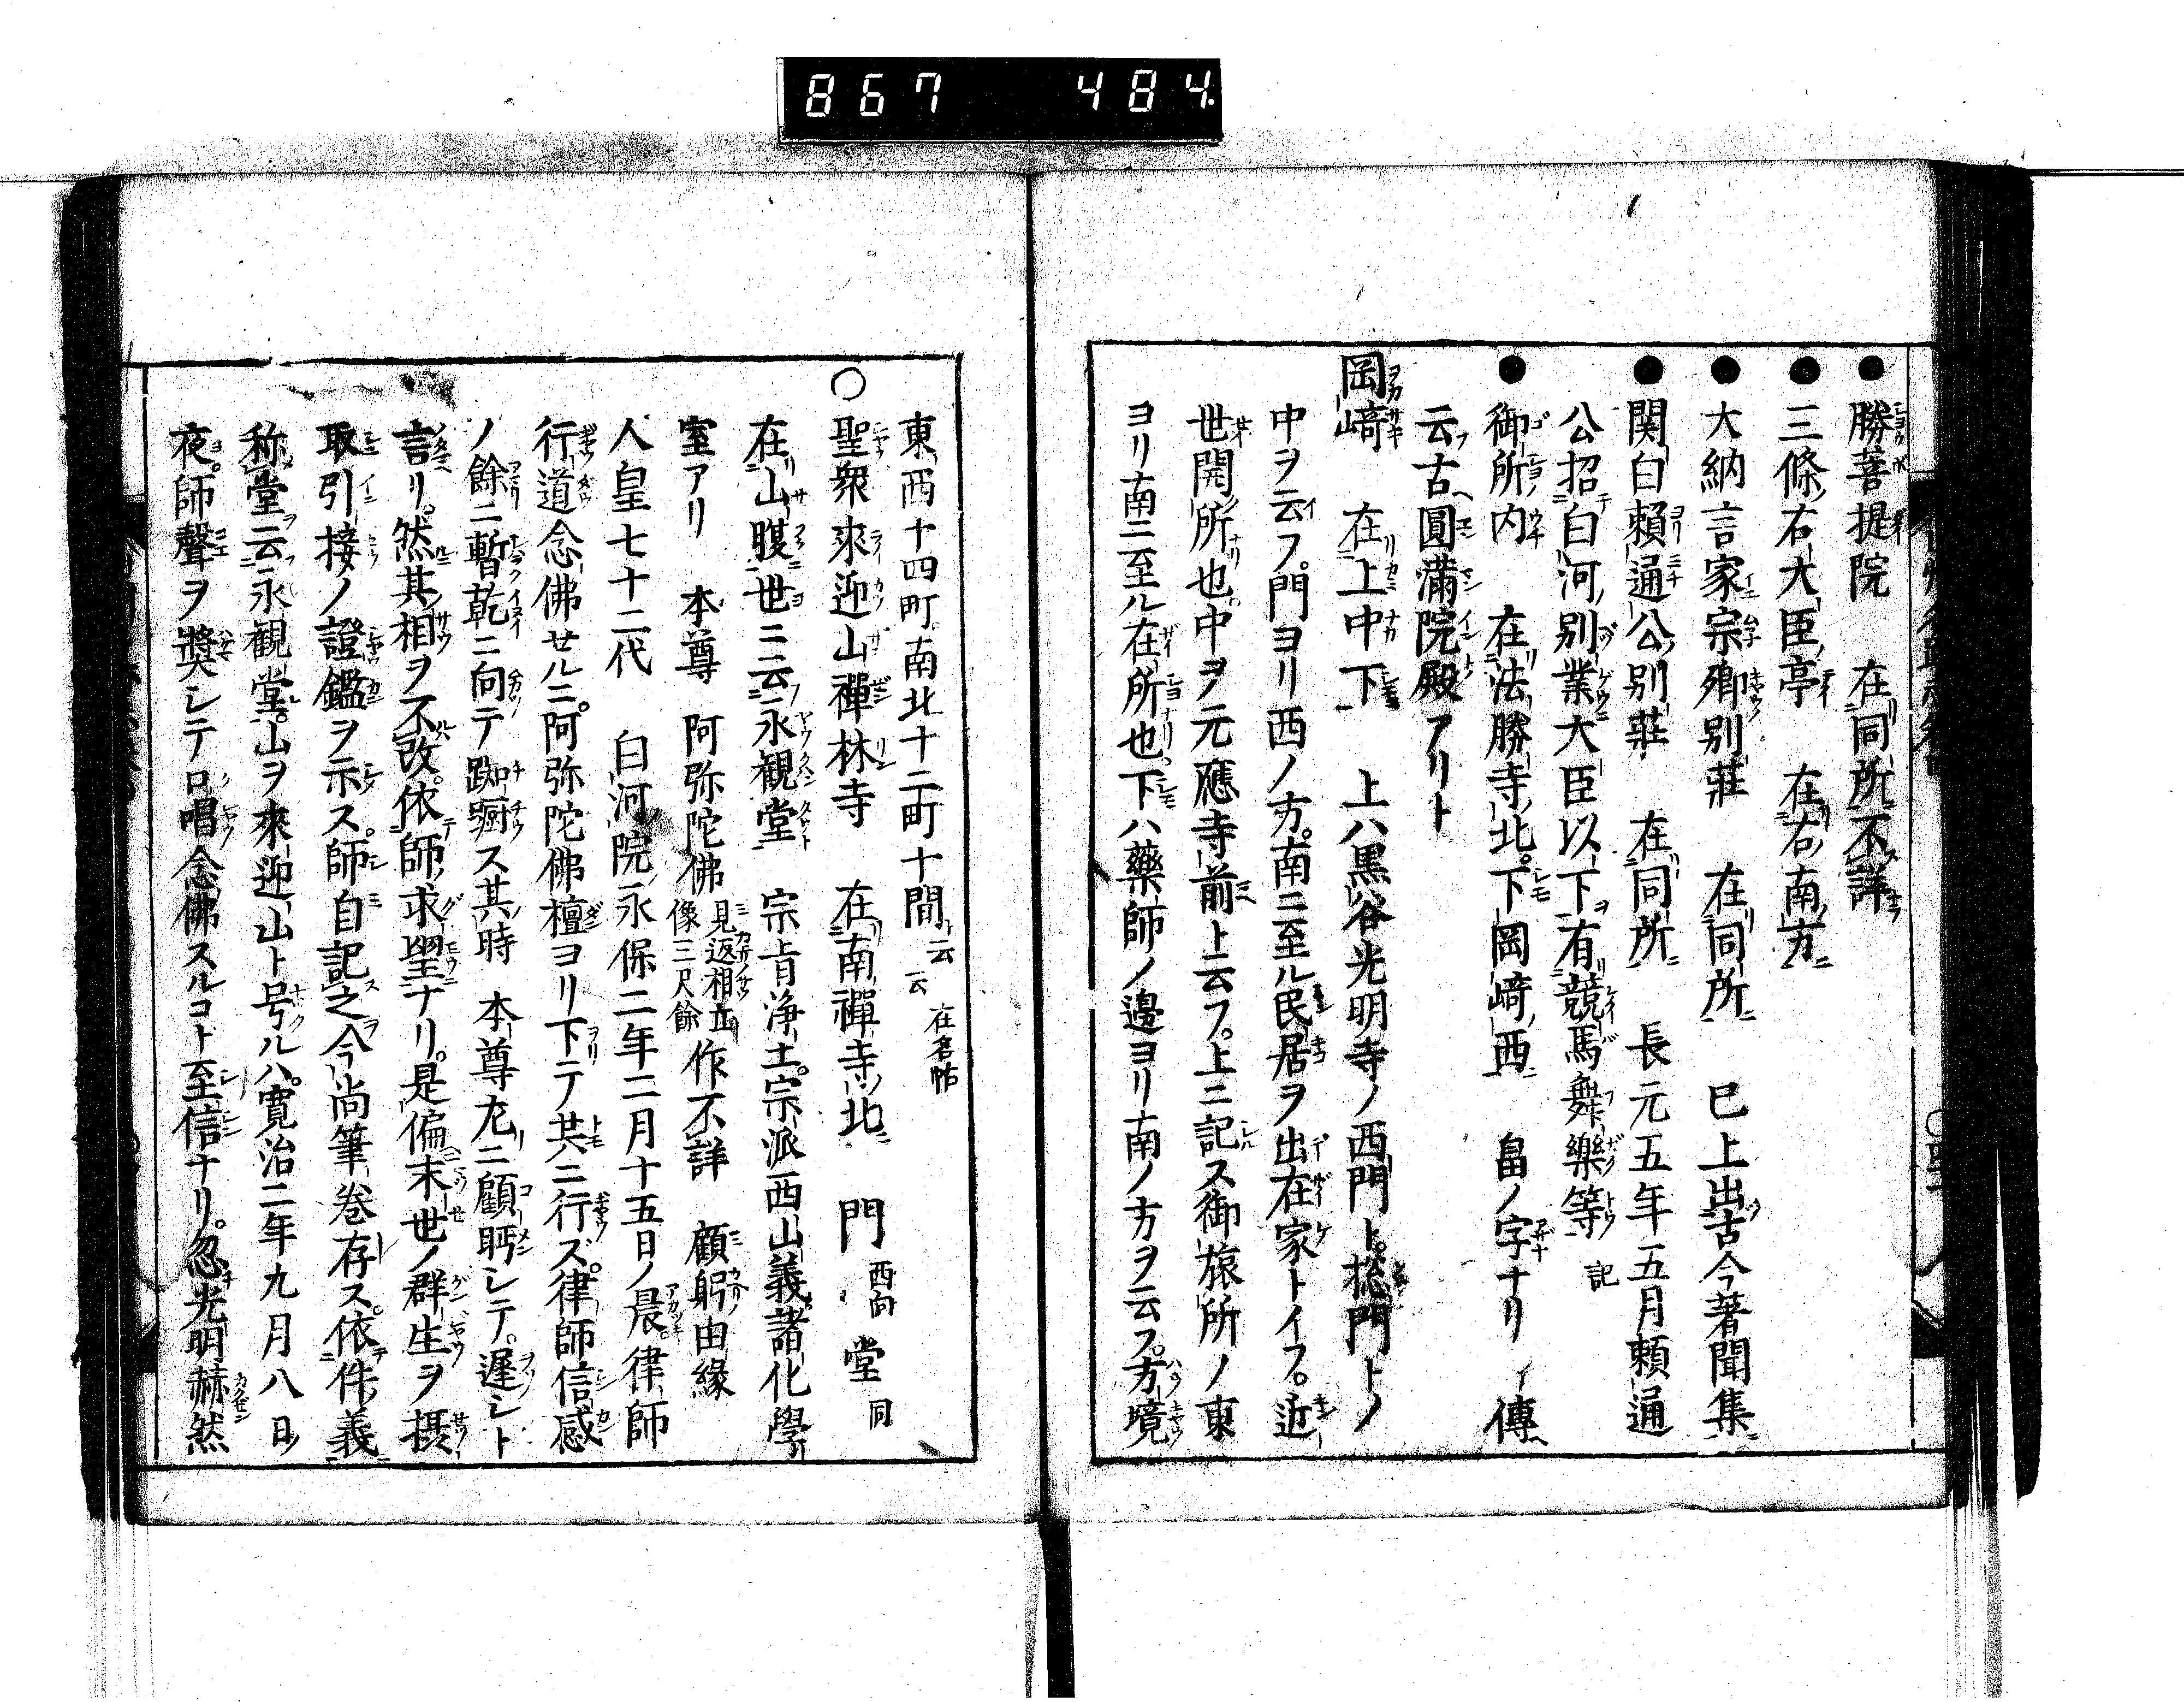 867 484.
●勝菩提院 在同所不詳
●三條右大臣亭 在右南方
●大納言家宗卿別莊 在同所 已上出古今著聞集
●関白賴通公別莊 在同所 長元五年五月賴通
公招白河別業大臣以下有競馬舞樂等 記
●御所内 在法勝寺北下岡﨑西 畠ノ字ナリ 傳
云古圓滿院殿アリト
岡﨑 在上中下 上ハ黒谷光明寺ノ西門ト揔門トノ
中ヲ云フ門ヨリ西ノ方南ニ至ル民居ヲ出在家トイフ近
世開所也中ヲ元應寺前ト云フ上ニ記ス御旅所ノ東
ヨリ南ニ至ル在所也下ハ藥師ノ邊ヨリ南ノ方ヲ云フ方境
東西十四町南北十二町十間ト云云 在名帖
○聖衆來迎山禪林寺 在南禪寺北 門西向 堂同
在山腹世ニ云永観堂 宗旨浄土宗派西山義諸化學
室アリ 本尊 阿弥陀佛 見返相立像三尺餘 作不詳 顧躬由緣
人皇七十二代 白河院永保二年二月十五日ノ晨律師
行道念佛セルニ阿弥陀佛檀ヨリ下テ共ニ行ズ律師信感
ノ餘ニ暫乾ニ向テ踟蹰ス其時 本尊左ニ顧眄シテ遲シト
言リ然其相ヲ不改依師求望ナリ是偏末世ノ群生ヲ摂
取引接ノ證鑑ヲ示ス師自記之今尚筆卷存ス依件義
称堂云永観堂山ヲ來迎山ト号ルハ寛治二年九月八日
夜師聲ヲ奬シテ口唱念佛スルコト至信ナリ忽光明赫然